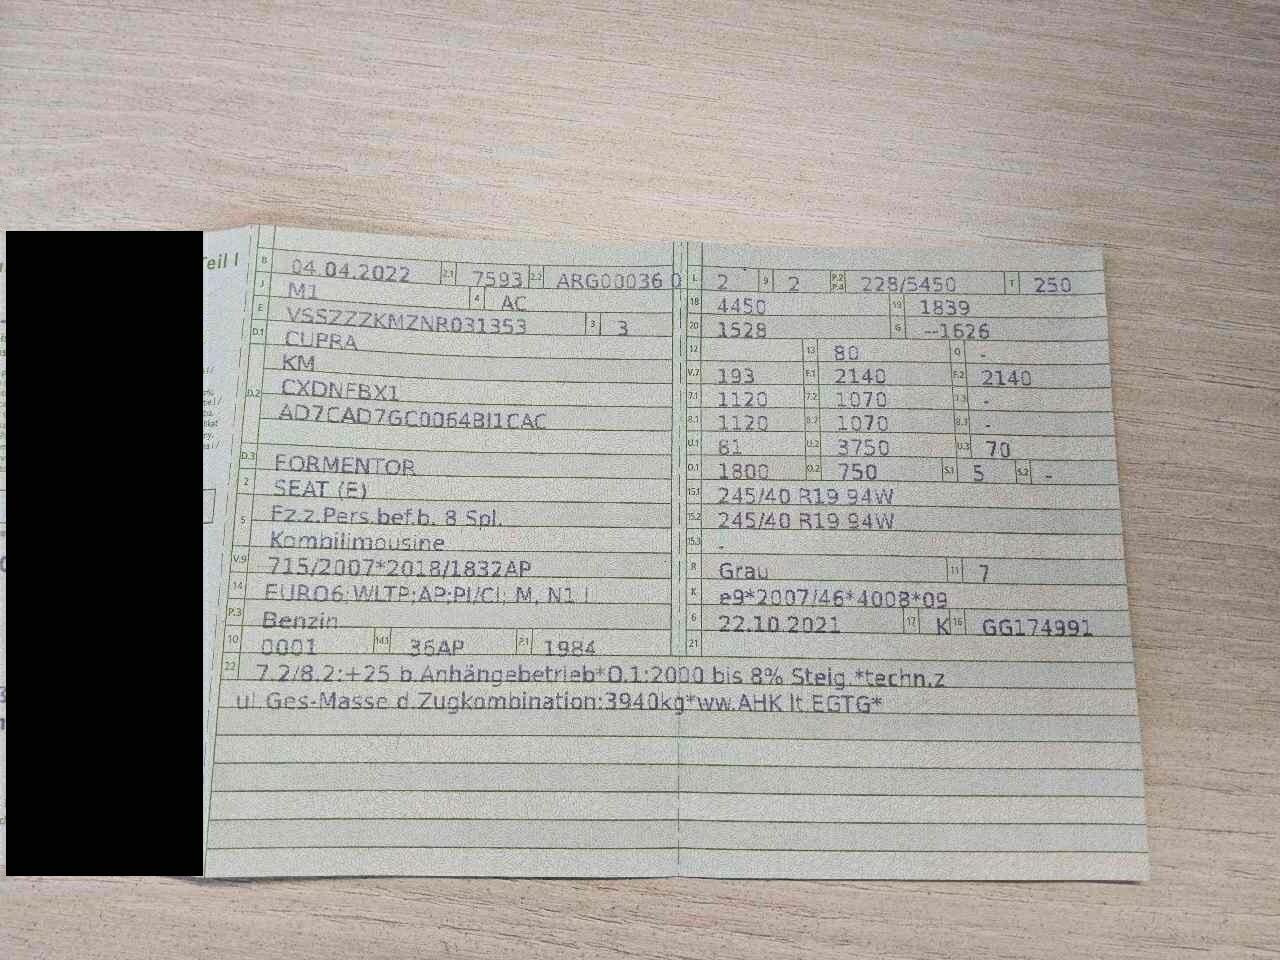 Teil I
B 04.04.2022 2.1 7593 2.2 ARG00036 0
J M1 4 AC
E VSSZZZKMZNR031353 3 3
D.1 CUPRA
KM
D.2 CXDNFBX1
AD7CAD7GC0064BI1CAC
D.3 FORMENTOR
2 SEAT (E)
5 Fz.z.Pers.bef.b. 8 Spl.
Kombilimousine
V.9 715/2007*2018/1832AP
14 EURO6;WLTP;AP;PI/CI; M, N1 I
P.3 Benzin
10 0001 14.1 36AP P.1 1984
L 2 9 2 P.2 P.4 228/5450 T 250
18 4450 19 1839
20 1528 G --1626
12 13 80 Q -
V.7 193 F.1 2140 F.2 2140
7.1 1120 7.2 1070 7.3 -
8.1 1120 8.2 1070 8.3 -
U.1 81 U.2 3750 U.3 70
O.1 1800 O.2 750 S.1 5 S.2 -
15.1 245/40 R19 94W
15.2 245/40 R19 94W
15.3 -
R Grau 11 7
K e9*2007/46*4008*09
6 22.10.2021 17 K 16 GG174991
21
22 7.2/8.2:+25 b.Anhängebetrieb*O.1:2000 bis 8% Steig.*techn.z
ul Ges-Masse d.Zugkombination:3940kg*ww.AHK lt.EGTG*